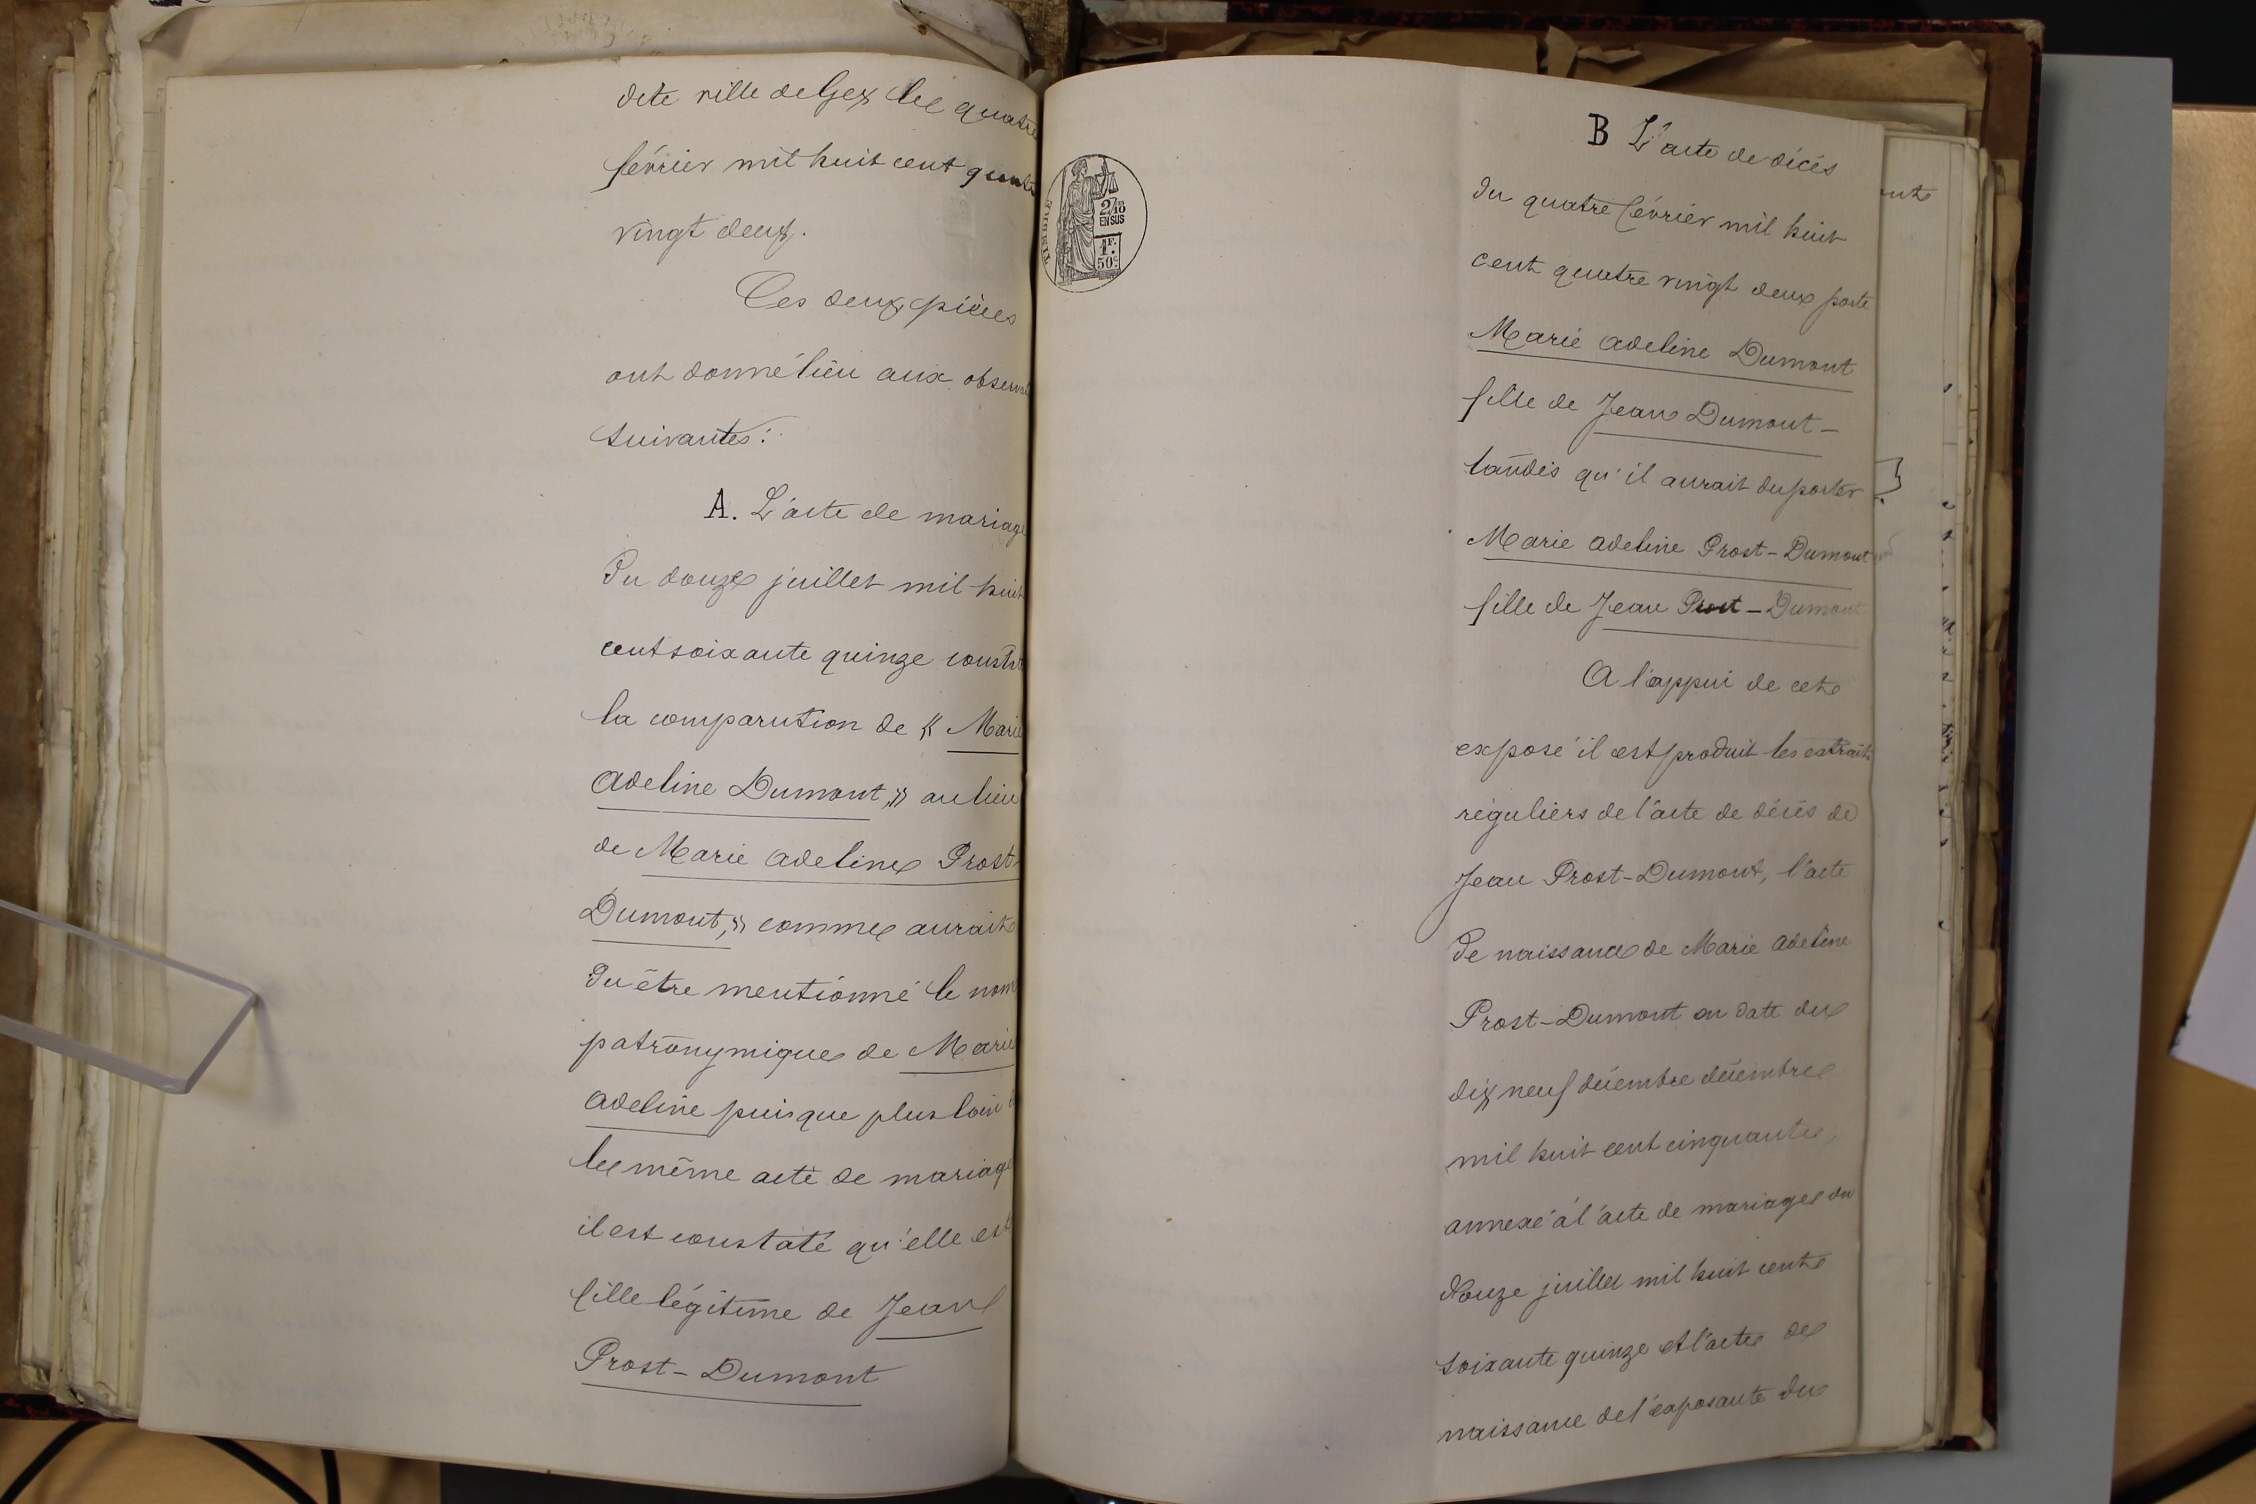 dite ville de Gex le quatre
février mil huit cent quatre
vingt deux.
Ces deux pièces
ont donné lieu aux observat
suivantes :
A. L'acte de mariage
du douze juillet mil huit
cent soixante quinze constate
la comparution de « Marie
Adeline Dumont, » au lieu
de Marie Adeline Prost-
Dumont, » comme aurait
du être mentionné le nom
patronymique de Marie
Adeline puisque plus loin
le même acte de mariage
il est constaté qu'elle est
fille légitime de Jean
Prost-Dumont
TIMBRE
2/10
EN SUS
1F.
50c
B L'acte de décés
du quatre février mil huit
cent quatre vingt deux porte
Marie Adeline Dumont
fille de Jean Dumont -
tandis qu'il aurait du porter
Marie Adeline Prost-Dumont
fille de Jean Prost-Dumont
A l'appui de cet
exposé il est produit les extraits
réguliers de l'acte de décès de
Jean Prost-Dumont, l'acte
de naissance de Marie Adeline
Prost-Dumont en date du
dix neuf décembre décembre
mil huit cent cinquante,
annexé à l'acte de mariage du
douze juillet mil huit cent
soixante quinze et l'acte de
naissance de l'exposante du